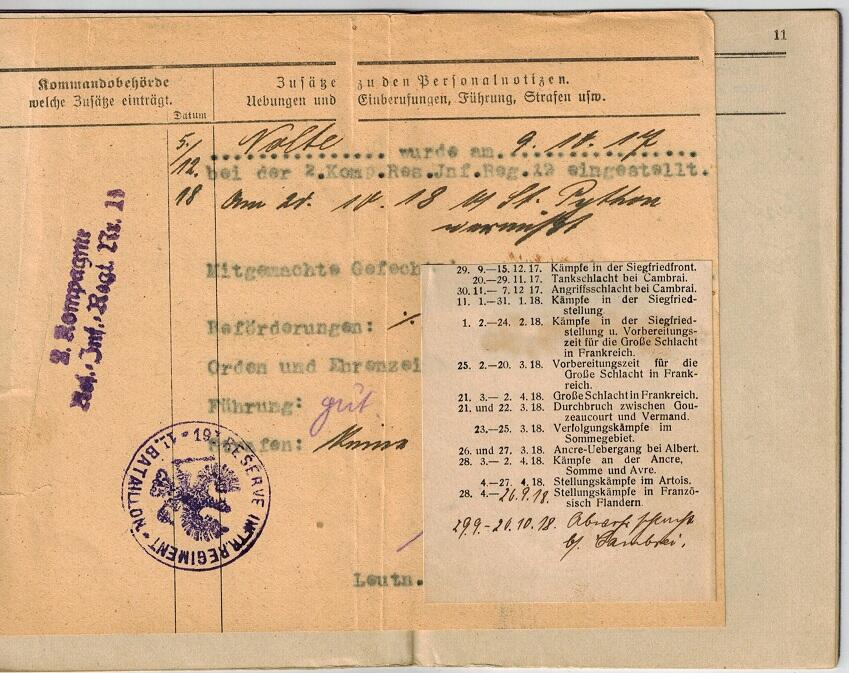 11
Kommandobehörde
welche Zusätze einträgt.
Datum
Zusätze zu den Personalnotizen.
Uebungen und Einberufungen, Führung, Strafen usw.
5/12 18
Nolte wurde am 9.10.17
bei der 2.Komp.Res.Jnf.Reg.19 eingestellt.
Am 20.10.18 St. Python
vermißt
2. Kompagnie
Res.-Inf.-Regt. Nr. 19
Mitgemachte Gefech
Beförderungen: ./.
Orden und Ehrenzei
Führung: gut
Strafen: Keine
Leutn.
19. RESERVE INFTR. REGIMENT - No. 11. BATAILLON
29. 9.—15. 12. 17. Kämpfe in der Siegfriedfront.
20.—29. 11. 17. Tankschlacht bei Cambrai.
30. 11.— 7. 12 17. Angriffsschlacht bei Cambrai.
11. 1.—31. 1. 18. Kämpfe in der Siegfried-
stellung.
1. 2.—24. 2. 18. Kämpfe in der Siegfried-
stellung u. Vorbereitungs-
zeit für die Große Schlacht
in Frankreich.
25. 2.—20. 3.18. Vorbereitungszeit für die
Große Schlacht in Frank-
reich.
21. 3.— 2. 4.18. Große Schlacht in Frankreich.
21. und 22. 3.18. Durchbruch zwischen Gou-
zeaucourt und Vermand.
23.—25. 3.18. Verfolgungskämpfe im
Sommegebiet.
26. und 27. 3.18. Ancre-Uebergang bei Albert.
28. 3.— 2. 4.18. Kämpfe an der Ancre,
Somme und Avre.
4.—27. 4.18. Stellungskämpfe im Artois.
28. 4.—26.9.18. Stellungskämpfe in Franzö-
sisch Flandern.
29.9.-20.10.18. Abwehrschlacht
b/ Cambrai.